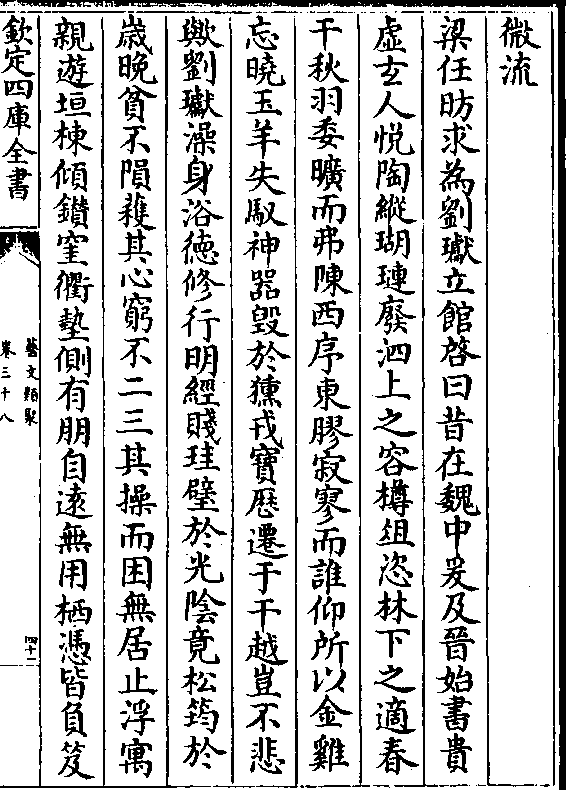 微流
梁任昉求為劉瓛立館啓曰昔在魏中爰及晉始書貴
虛玄人悦陶縱瑚璉廢泗上之容樽俎恣林下之適春
干秋羽委曠而弗陳西序東膠寂寥而誰仰所以金雞
忘曉玉羊失馭神器毀於獯戎寶厯遷于干越豈不悲
歟劉瓛澡身浴徳修行明經賤珪璧於光陰竟松筠於
嵗晚貧不隕穫其心窮不二三其操而困無居止浮寓
親遊垣棟傾鑚窐衢塾側有朋自逺無用栖憑皆負笈
欽定四庫全書
藝文類聚
卷三十八
四十二